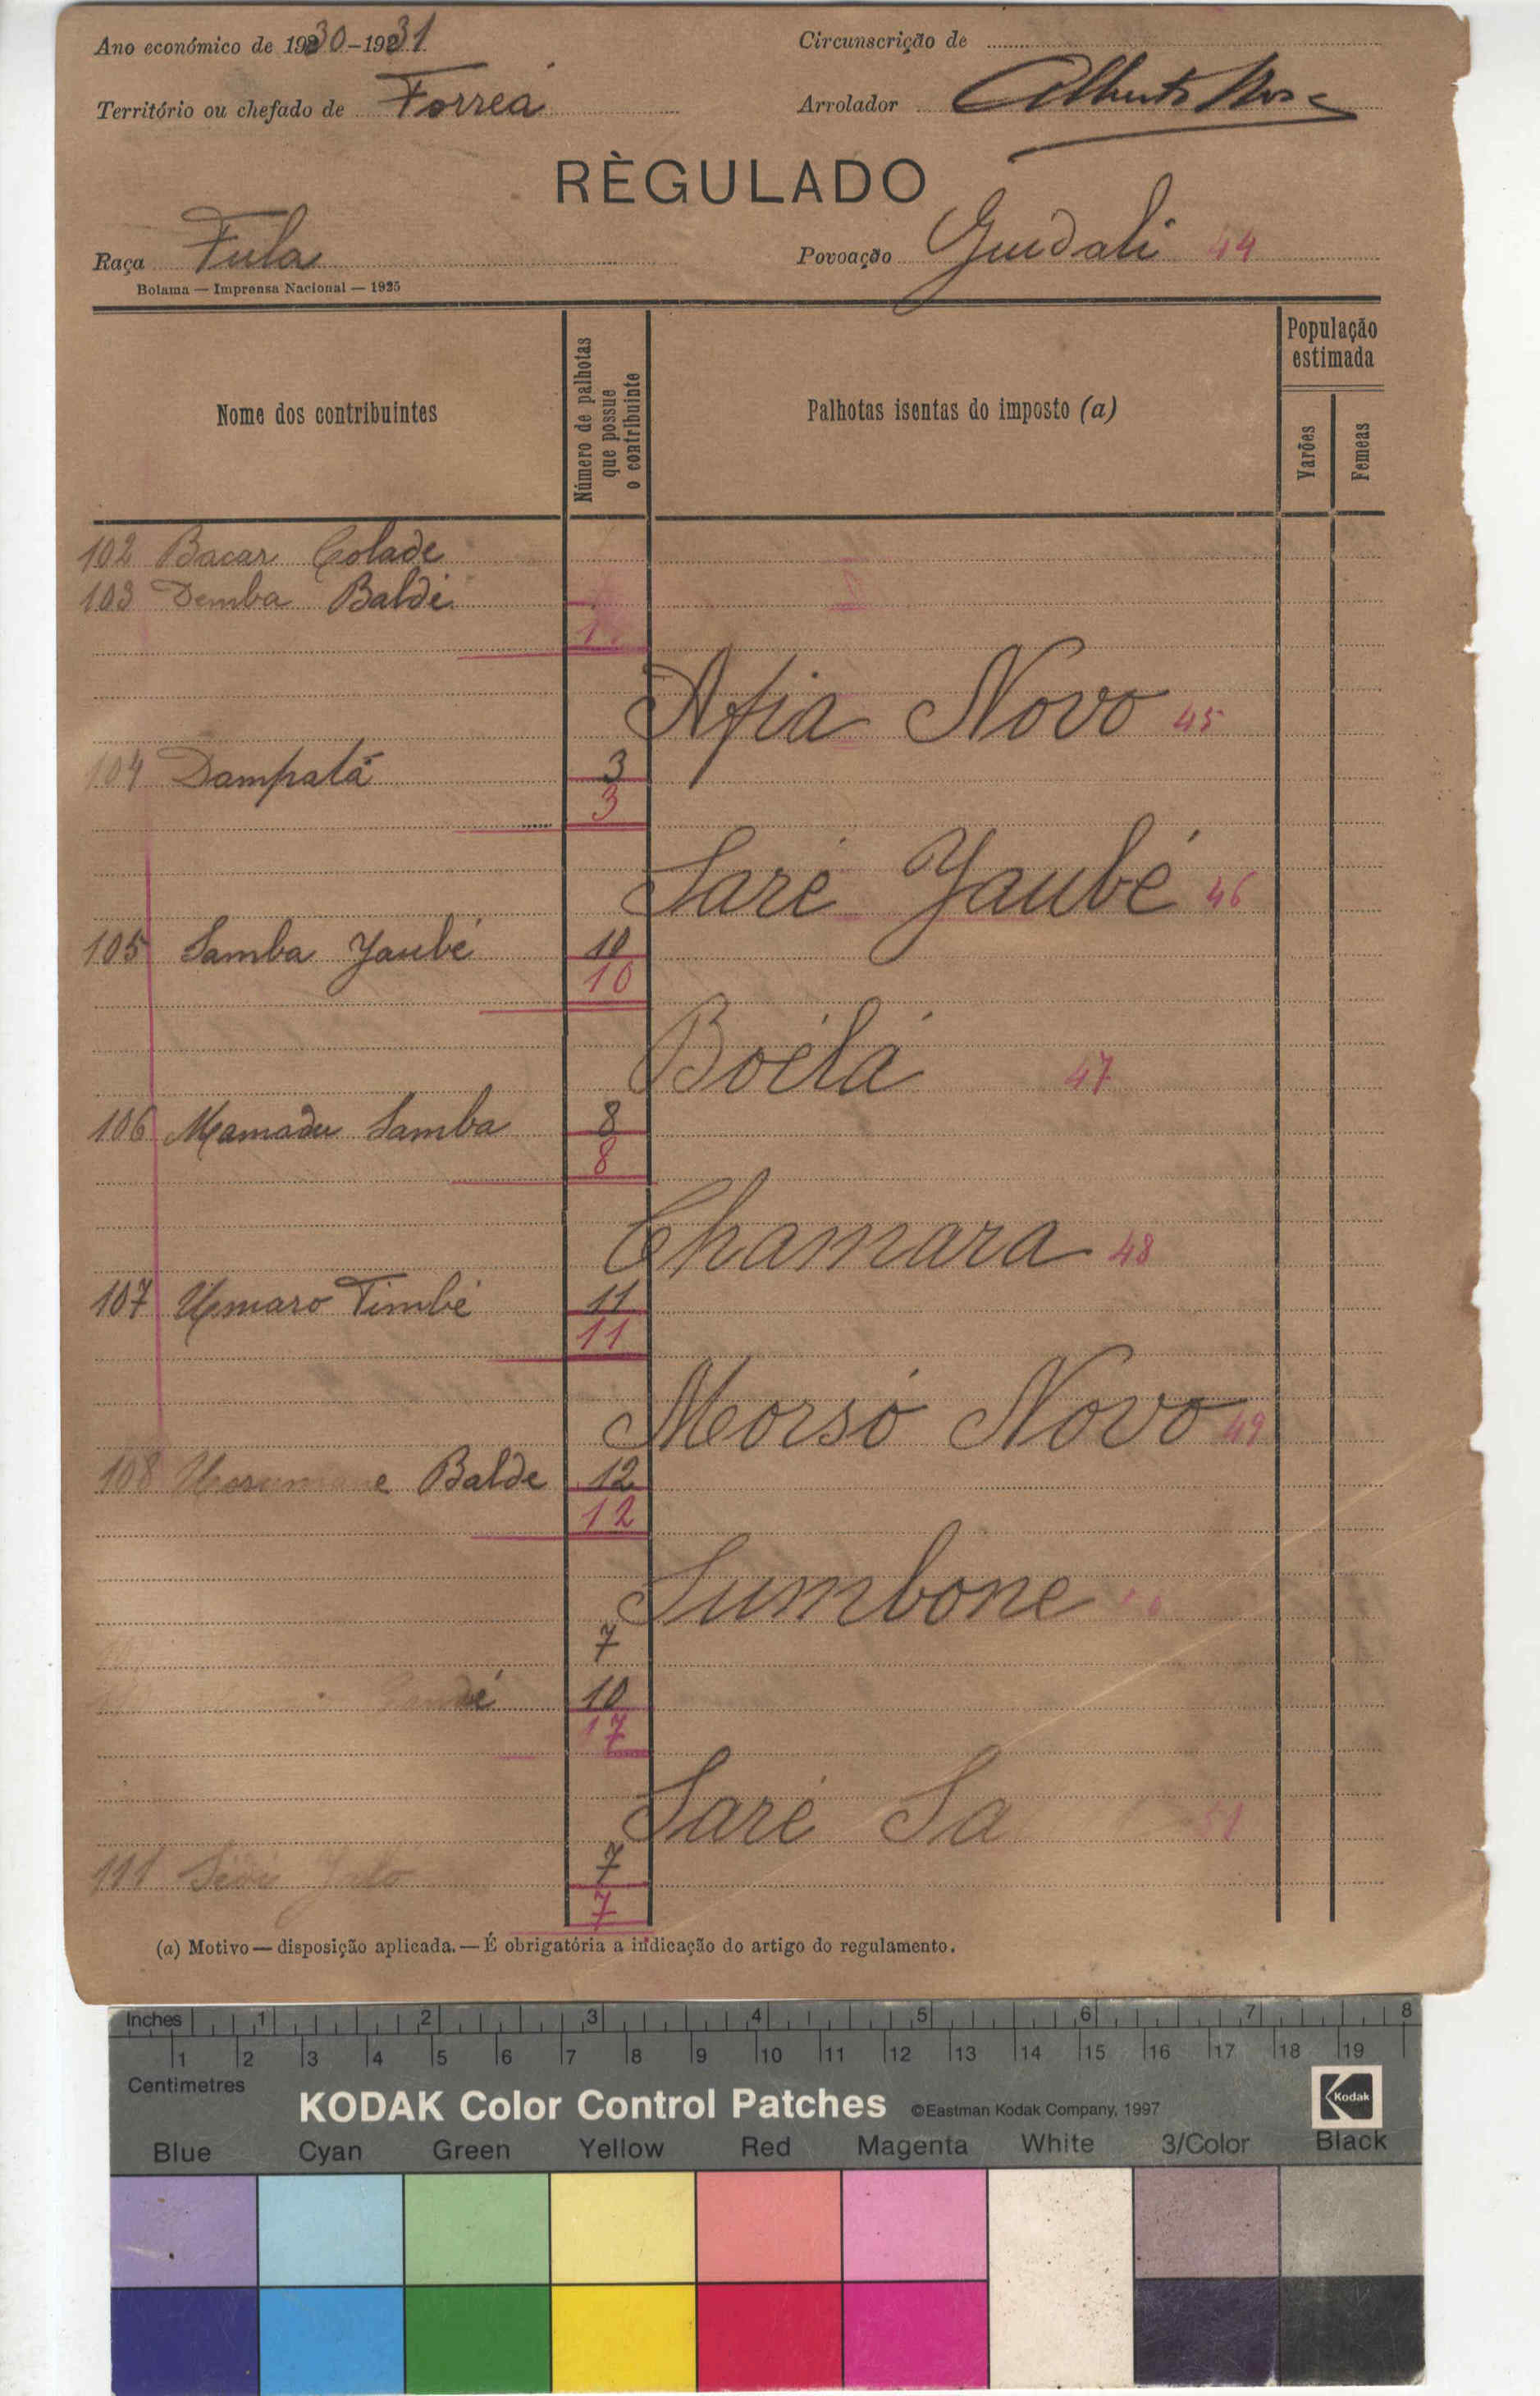 Ano económico de 1930-1931
Circunscrição de
Território ou chefado de Forreá
Arrolador Alberto
RÈGULADO
Raça Fula
Povoação Guidali 44
Bolama — Imprensa Nacional — 1925
Nome dos contribuintes
Número de palhotas que possue o contribuinte
Palhotas isentas do imposto (a)
População estimada
Varões
Femeas
102 Bacar Colade
103 Demba Baldé
Afia Novo 45
104 Dampatá 3
3
Saré Yaubé 46
105 Samba Yaubé 10
10
Boélá 47
106 Mamadu Samba 8
8
Chamara 48
107 Umaro Timbé 11
11
Morsó Novo 49
108 Balde 12
12
Sumbone
7
10
17
Saré Sa 51
111 7
7
(a) Motivo — disposição aplicada. — É obrigatória a indicação do artigo do regulamento.
Inches 1 2 3 4 5 6 7 8
1 2 3 4 5 6 7 8 9 10 11 12 13 14 15 16 17 18 19
Centimetres
KODAK Color Control Patches ©Eastman Kodak Company, 1997
Kodak
Blue Cyan Green Yellow Red Magenta White 3/Color Black